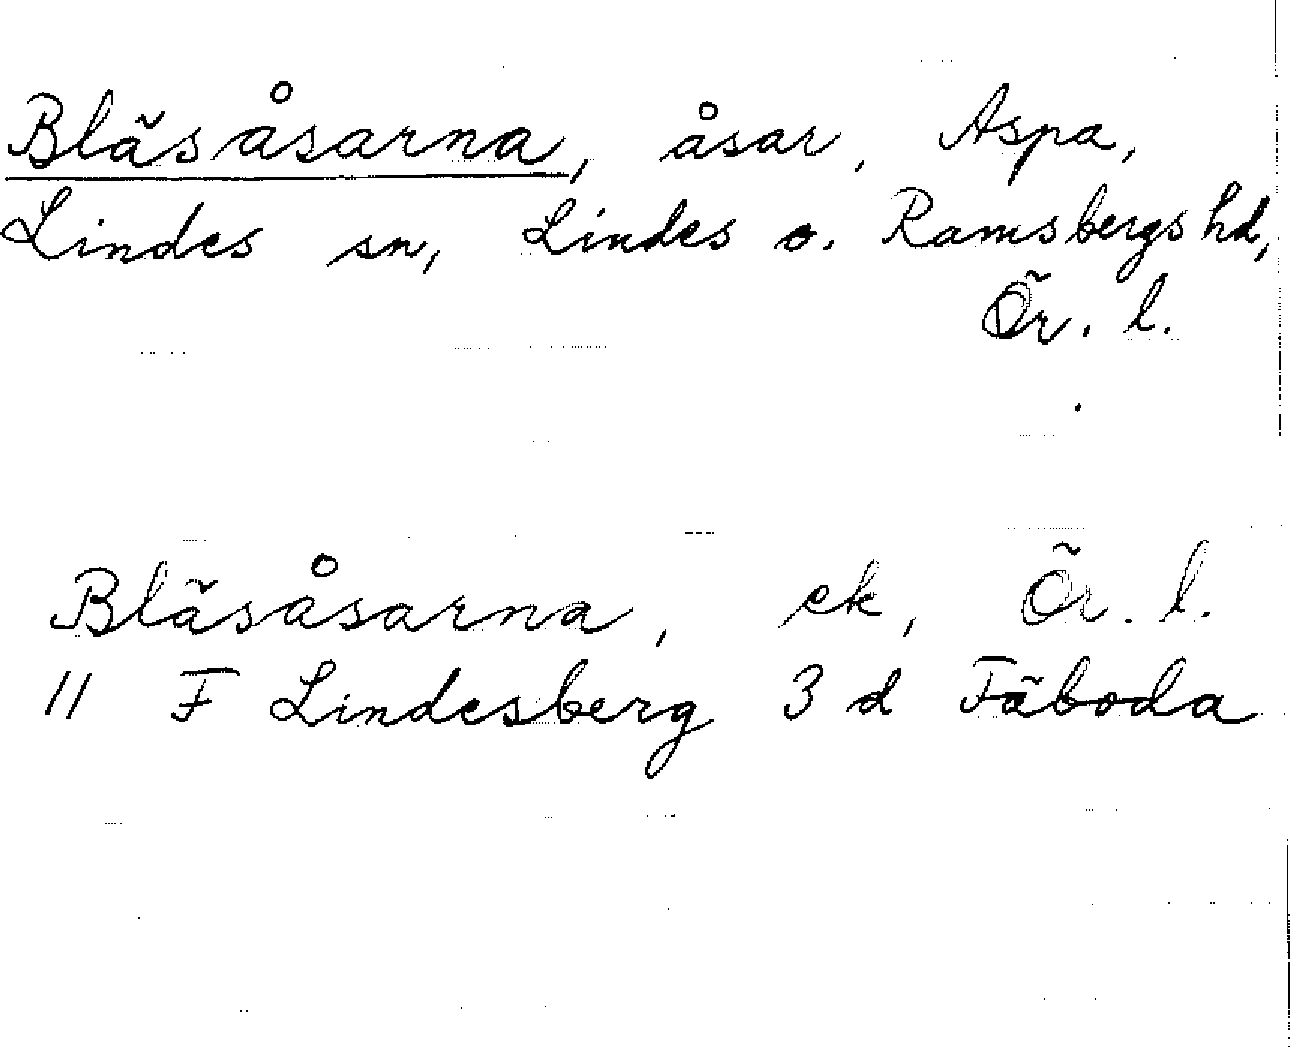 Bläsåsarna, åsar, Aspa,
Lindes sn, Lindes o. Ramsbergs hd,
Ör. l.
Bläsåsarna, ek, Ör. l.
11 F Lindesberg 3 d Fäboda